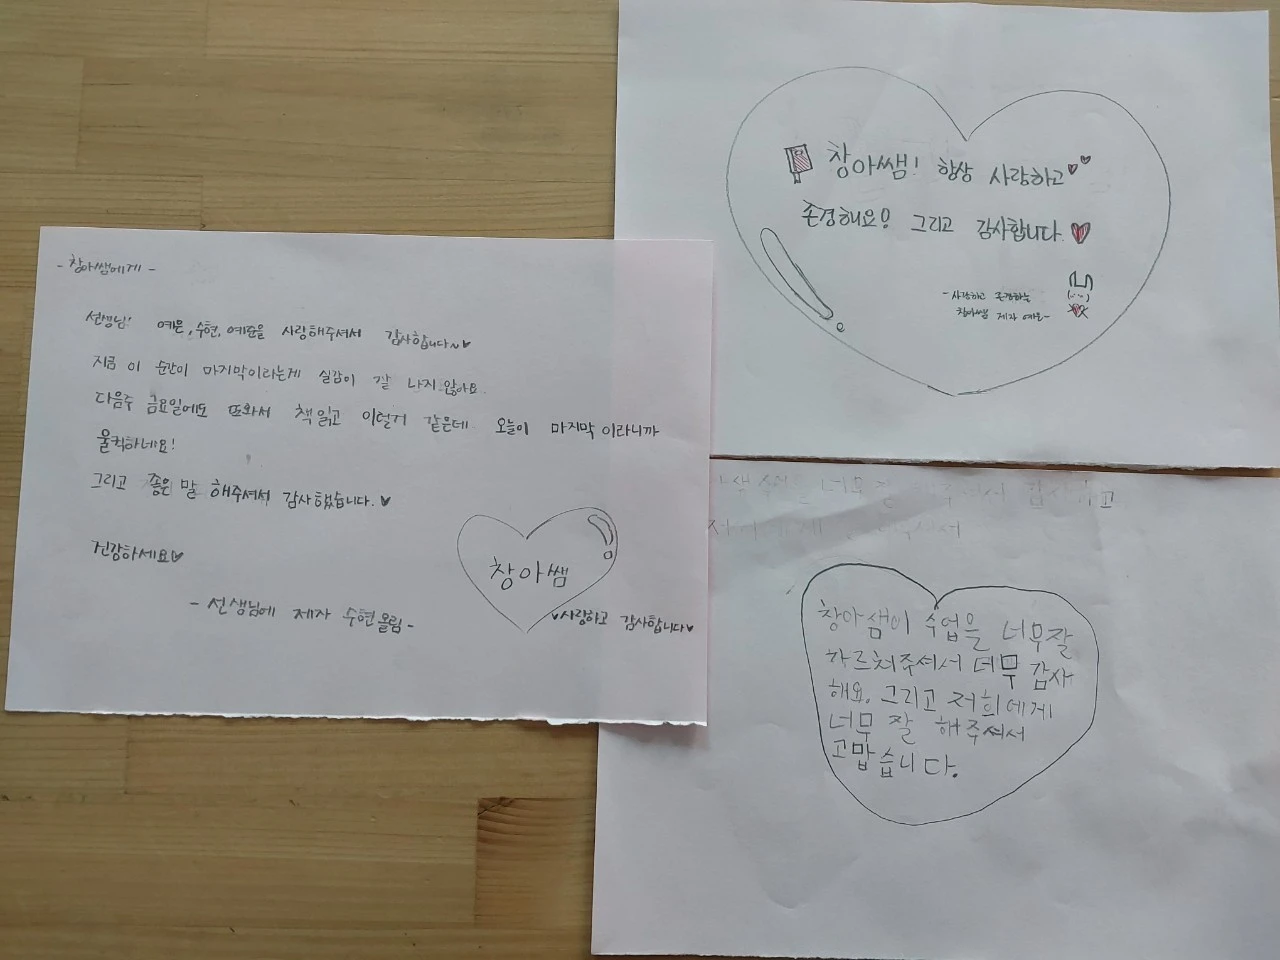 - 창아쌤에게 -
선생님! 예은, 수현, 예준을 사랑해주셔서 감사합니다~♥
지금 이 순간이 마지막이라는게 실감이 잘 나지 않아요.
다음주 금요일에도 또와서 책읽고 이럴거 같은데 오늘이 마지막 이라니까
울컥하네요!
그리고 좋은 말 해주셔서 감사했습니다.♥
건강하세요♥
- 선생님에 제자 수현올림 -
창아쌤
♥사랑하고 감사합니다♥
창아쌤! 항상 사랑하고
존경해요! 그리고 감사합니다.
- 사랑하고 존경하는
창아쌤 제자 예은 -
수업을 너무 잘 해주셔서 감사하고
창아샘이 수업을 너무잘
가르쳐주셔서 너무 감사
해요. 그리고 저희에게
너무 잘 해주셔서
고맙습니다.